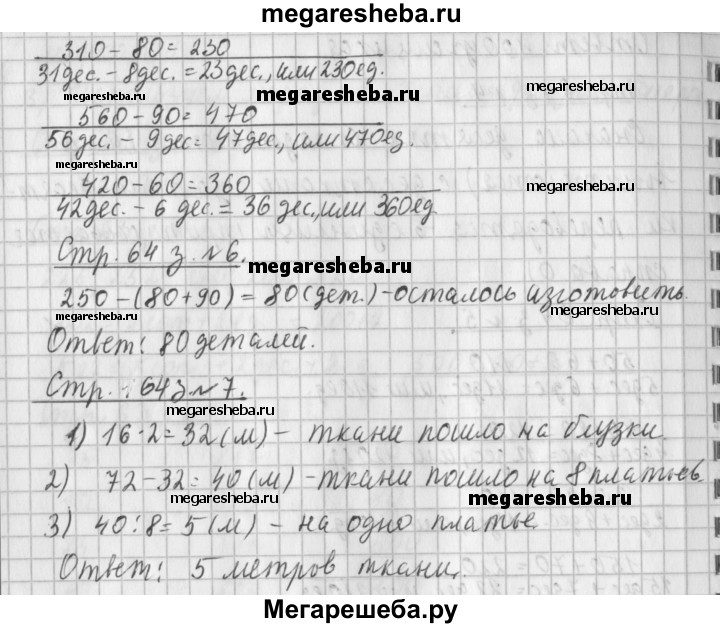 megaresheba.ru
310 - 80 = 230
31дес. - 8дес. = 23дес., или 230ед.
megaresheba.ru megaresheba.ru megaresheba.ru
560 - 90 = 470
56дес. - 9дес = 47дес., или 470ед.
megaresheba.ru
420 - 60 = 360 megaresheba.ru
42дес. - 6 дес. = 36 дес., или 360ед
Стр. 64 з. №6.
megaresheba.ru
250 - (80+90) = 80(дет.) - осталось изготовить.
megaresheba.ru megaresheba.ru
Ответ: 80 деталей.
Стр. : 64 з №7.
megaresheba.ru
1) 16·2=32(м) - ткани пошло на блузки.
megaresheba.ru
2) 72-32=40(м) - ткани пошло на 8 платьев
megaresheba.ru megaresheba.ru
3) 40:8=5(м) - на одно платье.
Ответ: 5 метров ткани.
megaresheba.ru
Мегарешеба.ру